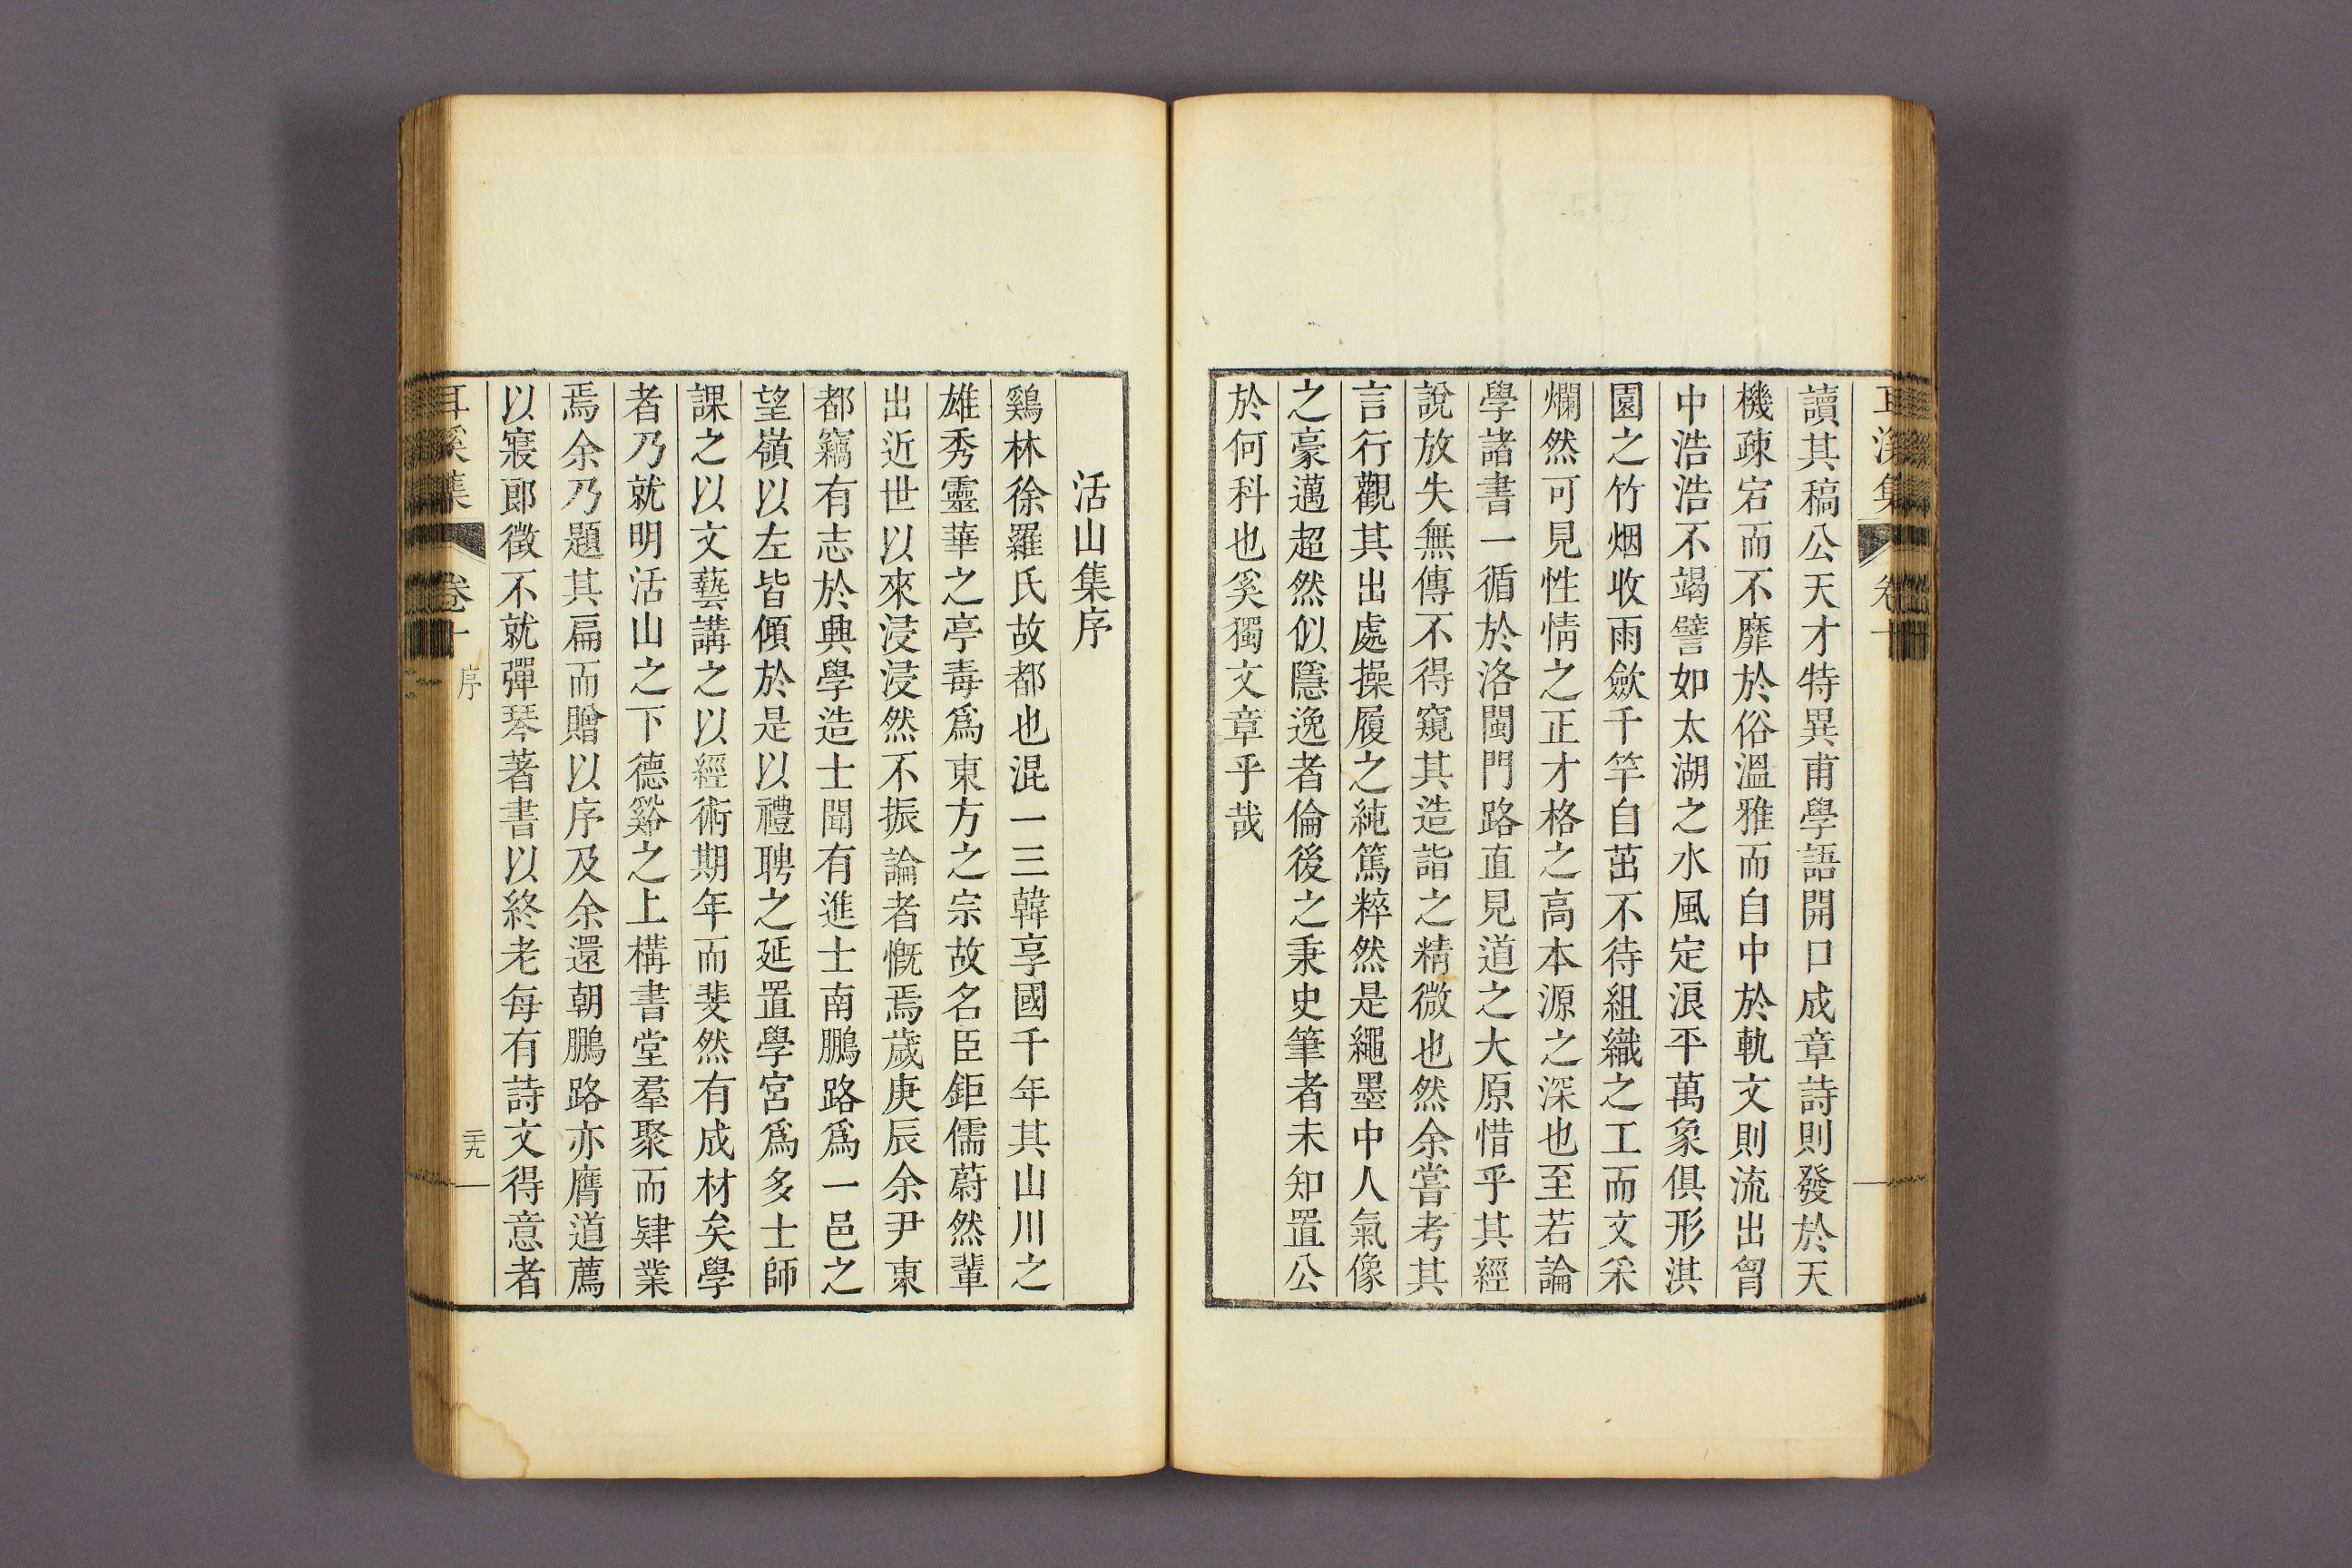 讀其稿公天才特異甫學語開口成章詩則發於天
機疎宕而不靡於俗溫雅而自中於軌文則流出胷
中浩浩不竭譬如太湖之水風定浪平萬象俱形淇
園之竹烟收雨歛千竿自茁不待組織之工而文采
爛然可見性情之正才格之高本源之深也至若論
學諸書一循於洛閩門路直見道之大原惜乎其經
說放失無傳不得窺其造詣之精微也然余嘗考其
言行觀其出處操履之純篤粹然是繩墨中人氣像
之豪邁超然似隱逸者倫後之秉史筆者未知置公
於何科也奚獨文章乎哉
活山集序
鷄林徐羅氏故都也混一三韓享國千年其山川之
雄秀靈華之亭毒爲東方之宗故名臣鉅儒蔚然輩
出近世以來浸浸然不振論者慨焉歲庚辰余尹東
都竊有志於興學造士聞有進士南鵬路爲一邑之
望嶺以左皆傾於是以禮聘之延置學宮爲多士師
課之以文藝講之以經術期年而斐然有成材矣學
者乃就明活山之下德谿之上構書堂羣聚而肄業
焉余乃題其扁而贈以序及余還朝鵬路亦膺道薦
以寢郞徵不就彈琴著書以終老每有詩文得意者
耳溪集
卷十
序
三十九